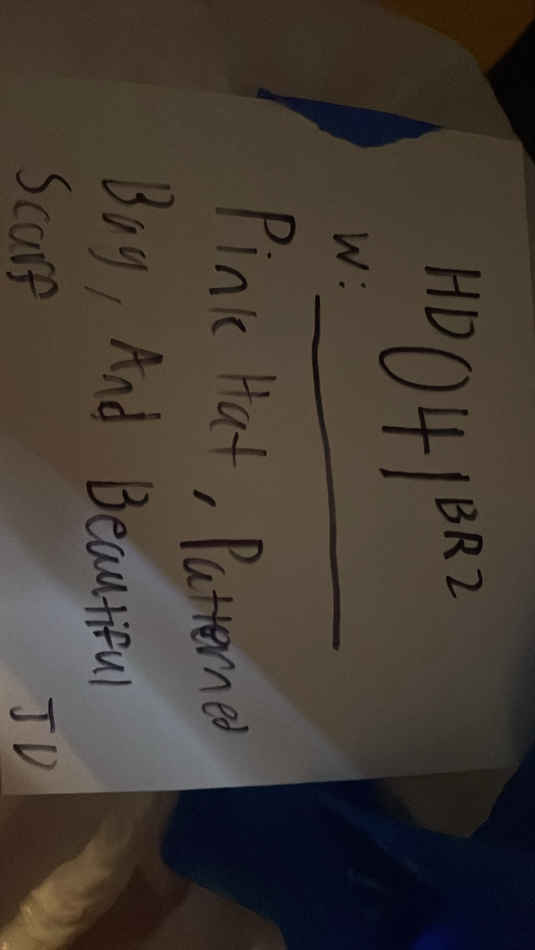 HD041BR2
W: ________
Pink Hat, Patterned
Bag, And Beautiful
Scarf JD